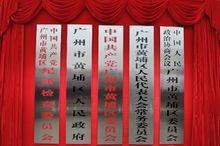 中国共产党
广州市黄埔区纪律检查委员会
广州市黄埔区人民政府
中国共产党广州市黄埔区委员会
广州市黄埔区人民代表大会常务委员会
中国人民
政治协商会议广州市黄埔区委员会